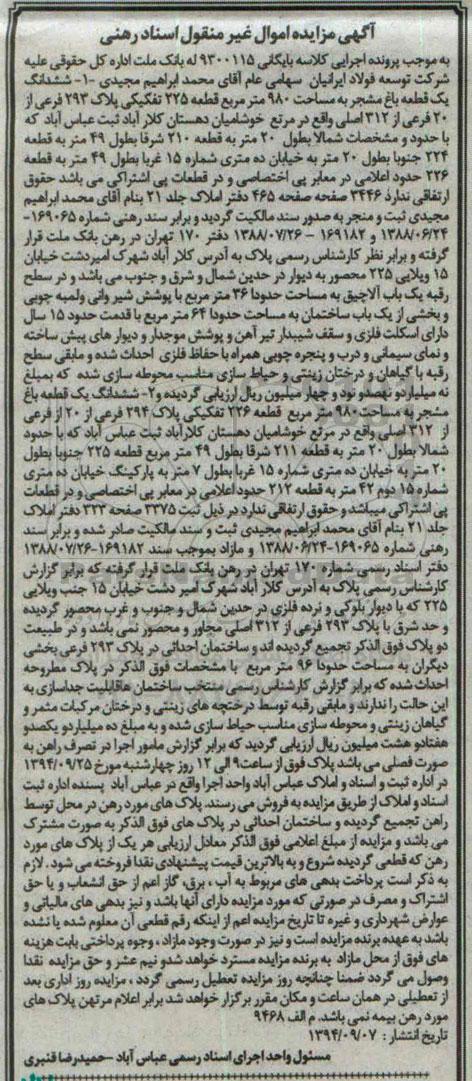 آگهی مزایده اموال غیر منقول اسناد رهنی
به موجب پرونده اجرایی کلاسه بایگانی ۹۳۰۰۱۱۵ له بانک ملت اداره کل حقوقی علیه
شرکت توسعه فولاد ایرانیان سهامی عام آقای محمد ابراهیم مجیدی -۱- ششدانگ
یک قطعه باغ مشجر به مساحت ۹۸۰ متر مربع قطعه ۲۲۵ تفکیکی پلاک ۲۹۳ فرعی از
۲۰ فرعی از ۳۱۲ اصلی واقع در مرتع خوشامیان دهستان کلار آباد ثبت عباس آباد که
با حدود و مشخصات شمالا بطول ۲۰ متر به قطعه ۲۱۰ شرقا بطول ۴۹ متر به قطعه
۲۲۴ جنوبا بطول ۲۰ متر به خیابان ده متری شماره ۱۵ غربا بطول ۴۹ متر به قطعه
۲۲۶ حدود اعلامی در معابر پی اختصاصی و در قطعات پی اشتراکی می باشد حقوق
ارتفاقی ندارد ۳۴۴۶ صفحه صفحه ۴۶۵ دفتر املاک جلد ۲۱ بنام آقای محمد ابراهیم
مجیدی ثبت و منجر به صدور سند مالکیت گردید و برابر سند رهنی شماره ۱۶۹۰۶۵-
۱۳۸۸/۰۶/۲۴ و ۱۶۹۱۸۲ - ۱۳۸۸/۰۷/۲۶ دفتر ۱۷۰ تهران در رهن بانک ملت قرار
گرفته و برابر نظر کارشناس رسمی پلاک به آدرس کلار آباد شهرک امیردشت خیابان
۱۵ ویلایی ۲۲۵ محصور به دیوار در حدین شمال و شرق و جنوب می باشد و در سطح
رقبه یک باب آلاچیق به مساحت حدودا ۳۶ متر مربع با پوشش شیر وانی ولمبه چوبی
و بخشی از یک باب ساختمان به مساحت حدودا ۶۴ متر مربع با قدمت حدود ۱۵ سال
دارای اسکلت فلزی و سقف شیبدار تیر آهن و پوشش موجدار و دیوار های پیش ساخته
و نمای سیمانی و درب و پنجره چوبی همراه با حفاظ فلزی احداث شده و مابقی سطح
رقبه با گیاهان و درختان زینتی و حیاط سازی مناسب محوطه سازی شده که بمبلغ
نه میلیاردو نهصدو نود و چهار میلیون ریال ارزیابی گردیده و۲- ششدانگ یک قطعه باغ
مشجر به مساحت ۹۸۰ متر مربع قطعه ۲۲۶ تفکیکی پلاک ۲۹۴ فرعی از ۲۰ از فرعی
از ۳۱۲ اصلی واقع در مرتع خوشامیان دهستان کلارآباد ثبت عباس آباد که با حدود
شمالا بطول ۲۰ متر به قطعه ۲۱۱ شرقا بطول ۴۹ متر مربع قطعه ۲۲۵ جنوبا بطول
۲۰ متر به خیابان ده متری شماره ۱۵ غربا بطول ۷ متر به پارکینگ خیابان ده متری
شماره ۱۵ دوم ۴۲ متر به قطعه ۲۱۲ حدود اعلامی در معابر پی اختصاصی و در قطعات
پی اشتراکی میباشد و حقوق ارتفاقی ندارد در ذیل ثبت ۳۳۷۵ صفحه ۳۲۳ دفتر املاک
جلد ۲۱ بنام آقای محمد ابراهیم مجیدی ثبت و سند مالکیت صادر شده و برابر سند
رهنی شماره ۱۶۹۰۶۵-۱۳۸۸/۰۶/۲۴ و مازاد بموجب سند ۱۶۹۱۸۲-۱۳۸۸/۰۷/۲۶
دفتر اسناد رسمی شماره ۱۷۰ تهران در رهن بانک ملت قرار گرفته که برابر گزارش
کارشناس رسمی پلاک به آدرس کلار آباد شهرک امیر دشت خیابان ۱۵ جنب ویلایی
۲۲۵ که با دیوار بلوکی و نرده فلزی در حدین شمال و جنوب و غرب محصور گردیده
و حد شرق با پلاک ۲۹۳ فرعی از ۳۱۲ اصلی مجاور و محصور نمی باشد و در طبیعت
دو پلاک فوق الذکر تجمیع گردیده اند و ساختمان احداثی در پلاک ۲۹۳ فرعی بخشی
دیگران به مساحت حدودا ۹۶ متر مربع با مشخصات فوق الذکر در پلاک مطروحه
احداث شده که برابر گزارش کارشناس رسمی منتخب ساختمان هاقابلیت جداسازی به
این حالت را ندارند و مابقی رقبه توسط درختچه های زینتی و درختان مرکبات مثمر و
گیاهان زینتی و محوطه سازی مناسب حیاط سازی شده و به مبلغ ده میلیاردو یکصدو
هفتادو هشت میلیون ریال ارزیابی گردید که برابر گزارش مامور اجرا در تصرف راهن به
صورت فصلی می باشد پلاک فوق از ساعت۹ الی ۱۲ روز چهارشنبه مورخ ۱۳۹۴/۰۹/۲۵
در اداره ثبت و اسناد و املاک عباس آباد واحد اجرا واقع در عباس آباد پسنده اداره ثبت
اسناد و املاک از طریق مزایده به فروش می رسند. پلاک های مورد رهن در محل توسط
راهن تجمیع گردیده و ساختمان احداثی در پلاک های فوق الذکر به صورت مشترک
می باشد و مزایده از مبلغ اعلامی فوق الذکر معادل ارزیابی هر یک از پلاک های مورد
رهن که قطعی گردیده شروع و به بالاترین قیمت پیشنهادی نقدا فروخته می شود . لازم
به ذکر است پرداخت بدهی های مربوط به آب ، برق، گاز اعم از حق انشعاب و یا حق
اشتراک و مصرف در صورتی که مورد مزایده دارای آنها باشد و نیز بدهی های مالیاتی و
عوارض شهرداری و غیره تا تاریخ مزایده اعم از اینکه رقم قطعی آن معلوم شده یا نشده
باشد به عهده برنده مزایده است و نیز در صورت وجود مازاد ، وجوه پرداختی بابت هزینه
های فوق از محل مازاد به برنده مزایده مسترد خواهد شدو نیم عشر و حق مزایده نقدا
وصول می گردد ضمنا چنانچه روز مزایده تعطیل رسمی گردد ، مزایده روز اداری بعد
از تعطیلی در همان ساعت و مکان مقرر برگزار خواهد شد برابر اعلام مرتهن پلاک های
مورد رهن بیمه نمی باشد. م الف ۹۴۶۸
تاریخ انتشار : ۱۳۹۴/۰۹/۰۷
مسئول واحد اجرای اسناد رسمی عباس آباد -حمیدرضا قنبری